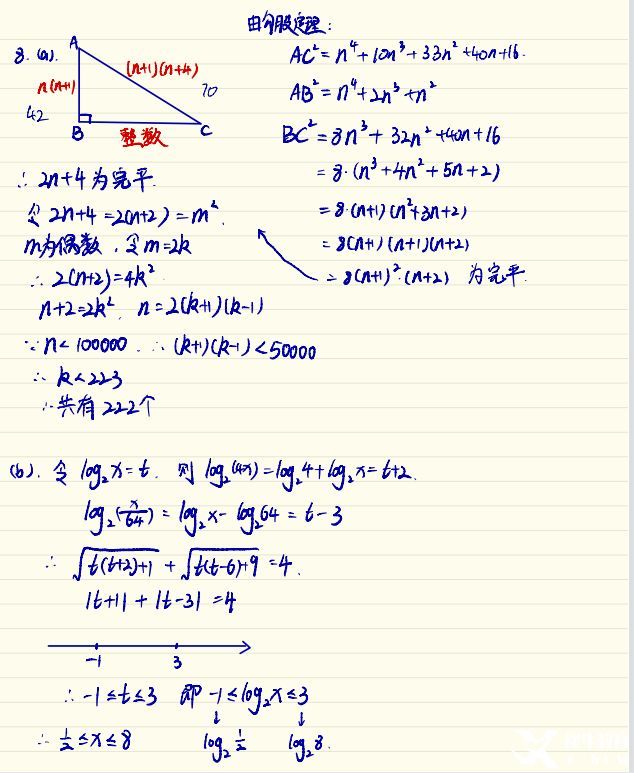 由勾股定理:
8. (a).
A
n(n+1)
42
(n+1)(n+4)
70
B
整数
C
AC² = n⁴ + 10n³ + 33n² + 40n + 16.
AB² = n⁴ + 2n³ + n²
BC² = 8n³ + 32n² + 40n + 16
= 8·(n³ + 4n² + 5n + 2)
= 8·(n+1)(n²+3n+2)
= 8(n+1)(n+1)(n+2)
= 8(n+1)²·(n+2) 为完平.
∴ 2n+4 为完平.
令 2n+4 = 2(n+2) = m².
m为偶数, 令 m=2k
∴ 2(n+2) = 4k²
n+2=2k², n=2(k+1)(k-1)
∵ n<100000 ∴ (k+1)(k-1)<50000
∴ k<223
∴ 共有 222个
(b). 令 log₂x = t. 则 log₂(4x) = log₂4 + log₂x = t+2.
log₂(x/64) = log₂x - log₂64 = t-3
∴ √(t(t+2)+1) + √(t(t-6)+9) = 4.
|t+1| + |t-3| = 4
-1 3
∴ -1≤t≤3 即 -1≤log₂x≤3
∴ 1/2≤x≤8 log₂1/2 log₂8.